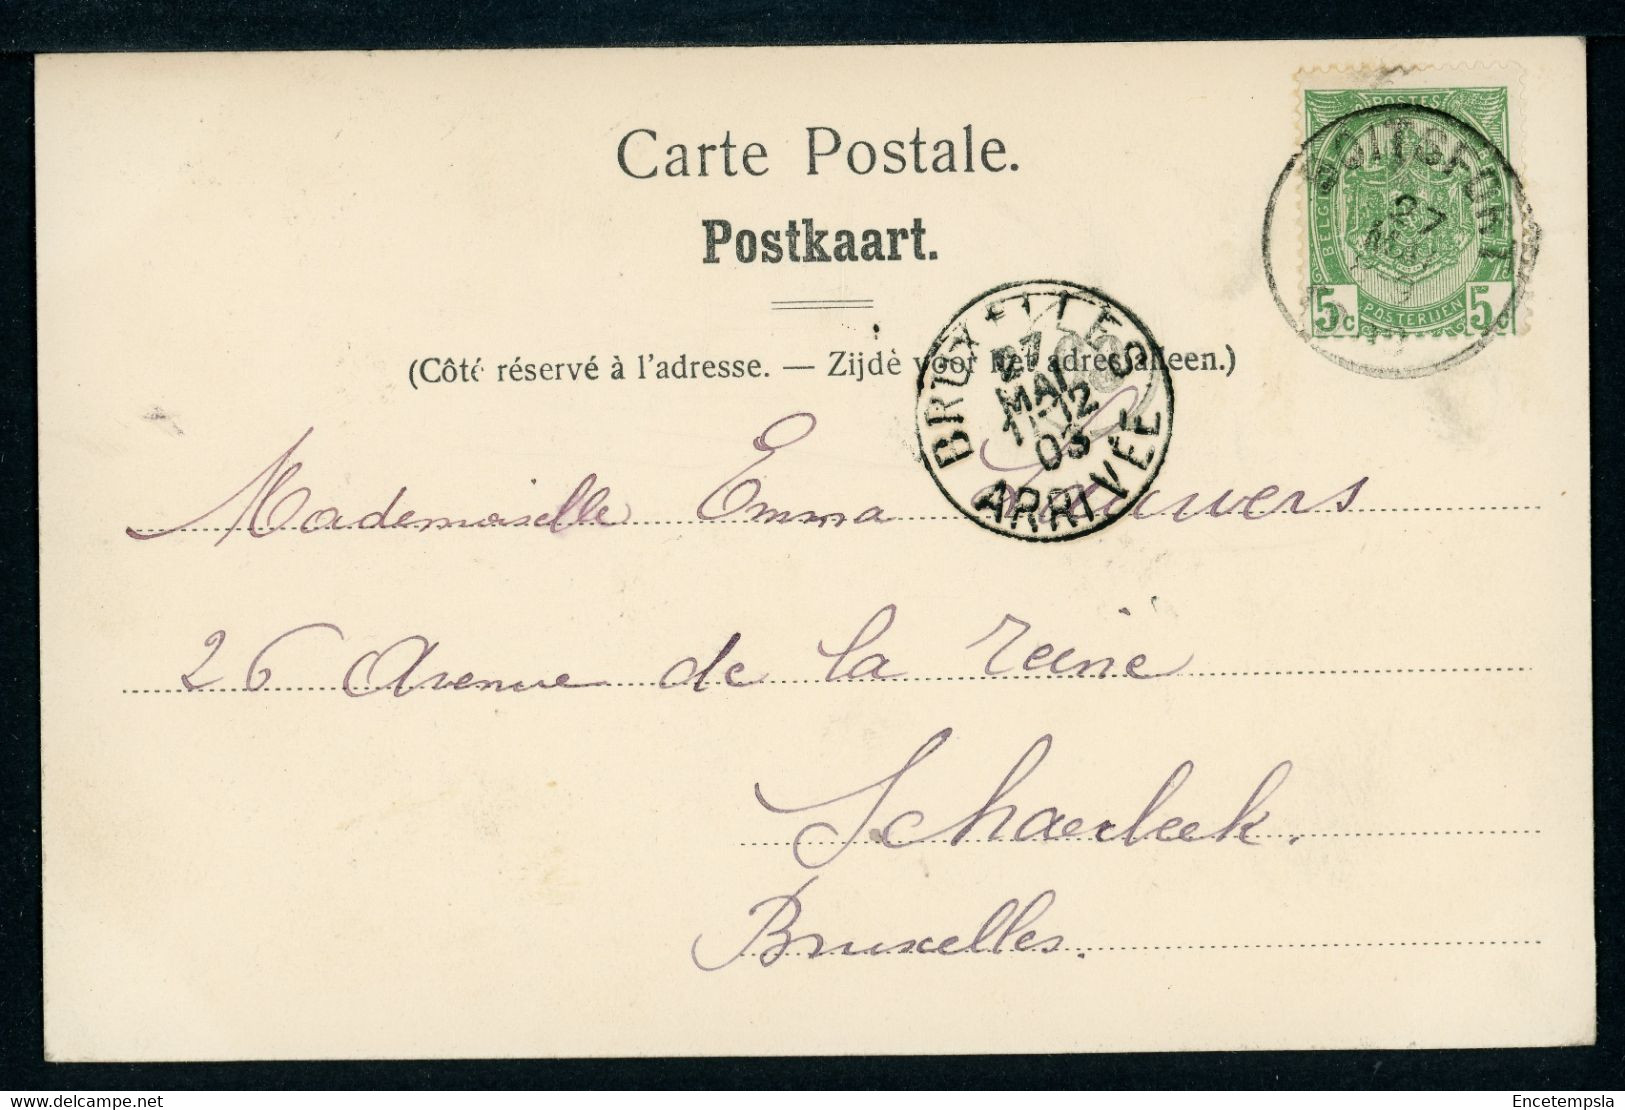 Carte Postale.
Postkaart.
(Côté réservé à l'adresse. — Zijde voor het adres alleen.)
POSTES
BELGIQUE
5c
POSTERIJEN
5c
27
BRUXELLES
27
MAI
11-12
03
ARRIVÉE
Mademoiselle Emma Lauwers
26 Avenue de la reine
Schaerbeek.
Bruxelles.
delcampe.net
Encetempsla